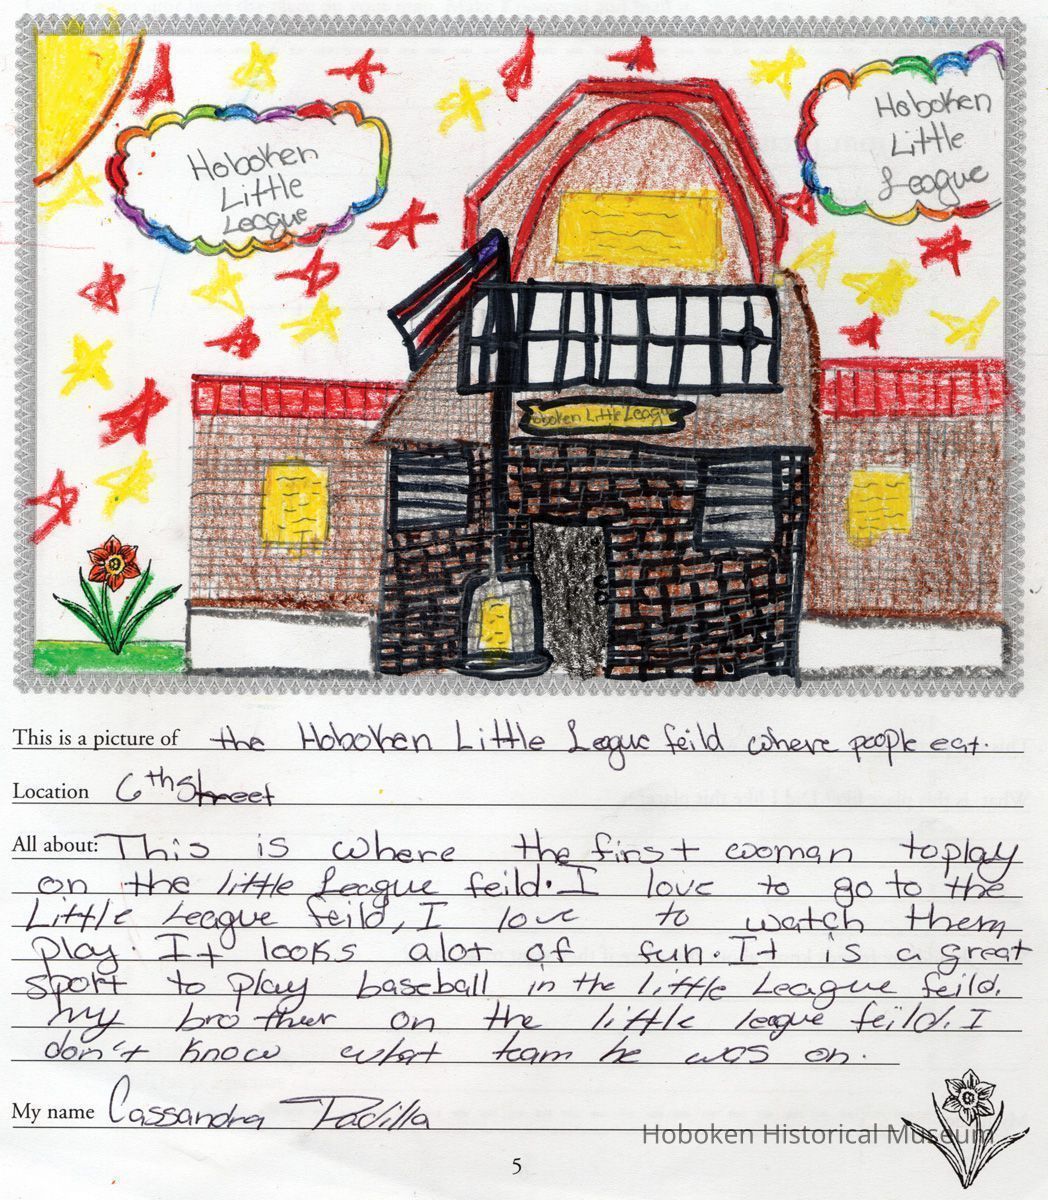 Hoboken
Little
League
Hoboken
Little
League
Hoboken Little League
This is a picture of the Hoboken Little League feild where people eat.
Location 6th Street
All about: This is where the first woman toplay
on the little League feild. I love to go to the
Little League feild, I love to watch them
play. It looks alot of fun. It is a great
sport to play baseball in the little League feild.
my brother on the little league feild. I
don't know what team he was on.
My name Cassandra Padilla
Hoboken Historical Museum
5